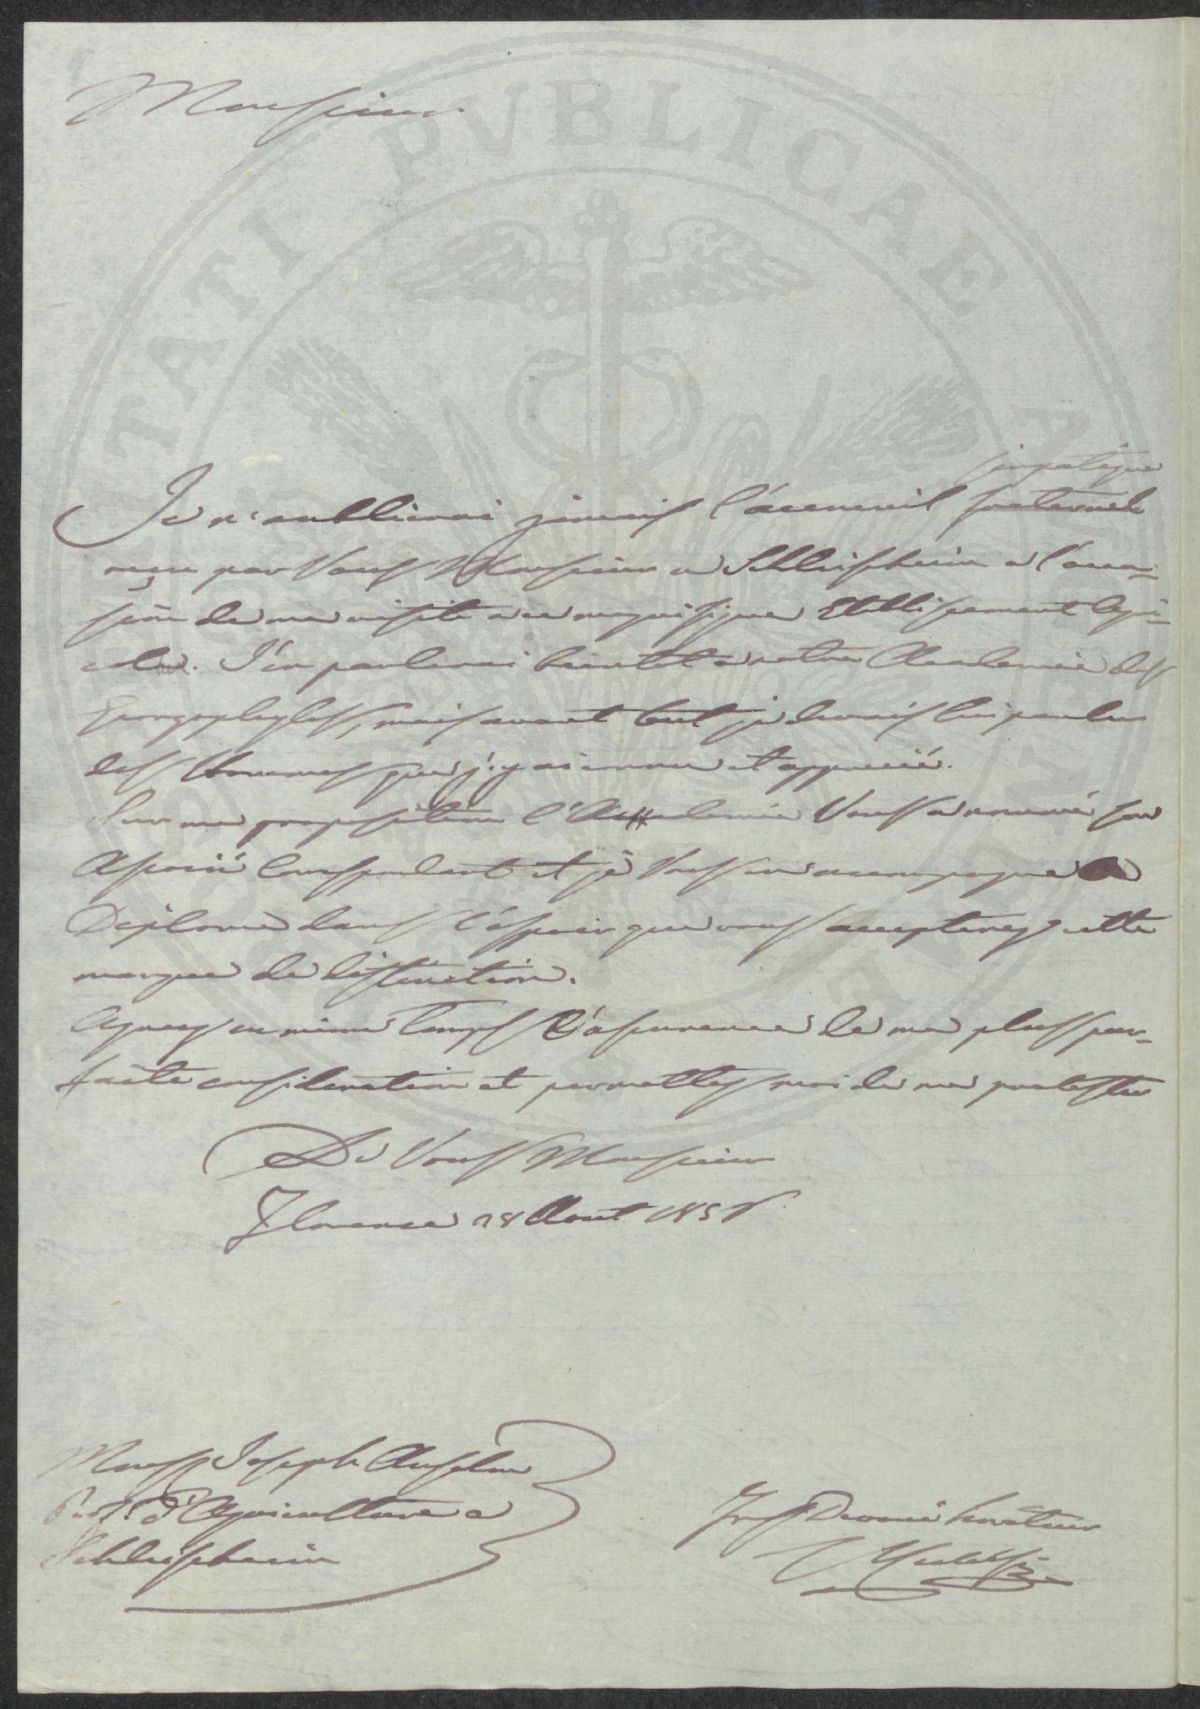 Monsieur
simpatique
Je n'oublierai jamais l'acceueil fraternel
reçu par Vous Monsieur a Schleisheim a l'occa-
sion de ma visite a ce magnifique Etablissement Agri-
cole. J'en parlerai bientot a notre Academie des
Georgophyles, mais avant tout je devais lui parler
des Hommes que j'y ai connu et apprecié.
Sur ma proposition l'Academie Vous a nommé son
Associé Correspondant et je Vous en accompagne le
Diplome dans l'espoir que vous accepterez cette
marque de distinction.
Agreez en même temps l'assurance de ma plus par-
faite consideration et permettez moi de me protester
De Vous Monsieur
Florence 28 Aout 185
Mons Joseph Anselm
Prof d'Agriculture a
Schleisheim
Devoué Serviteur